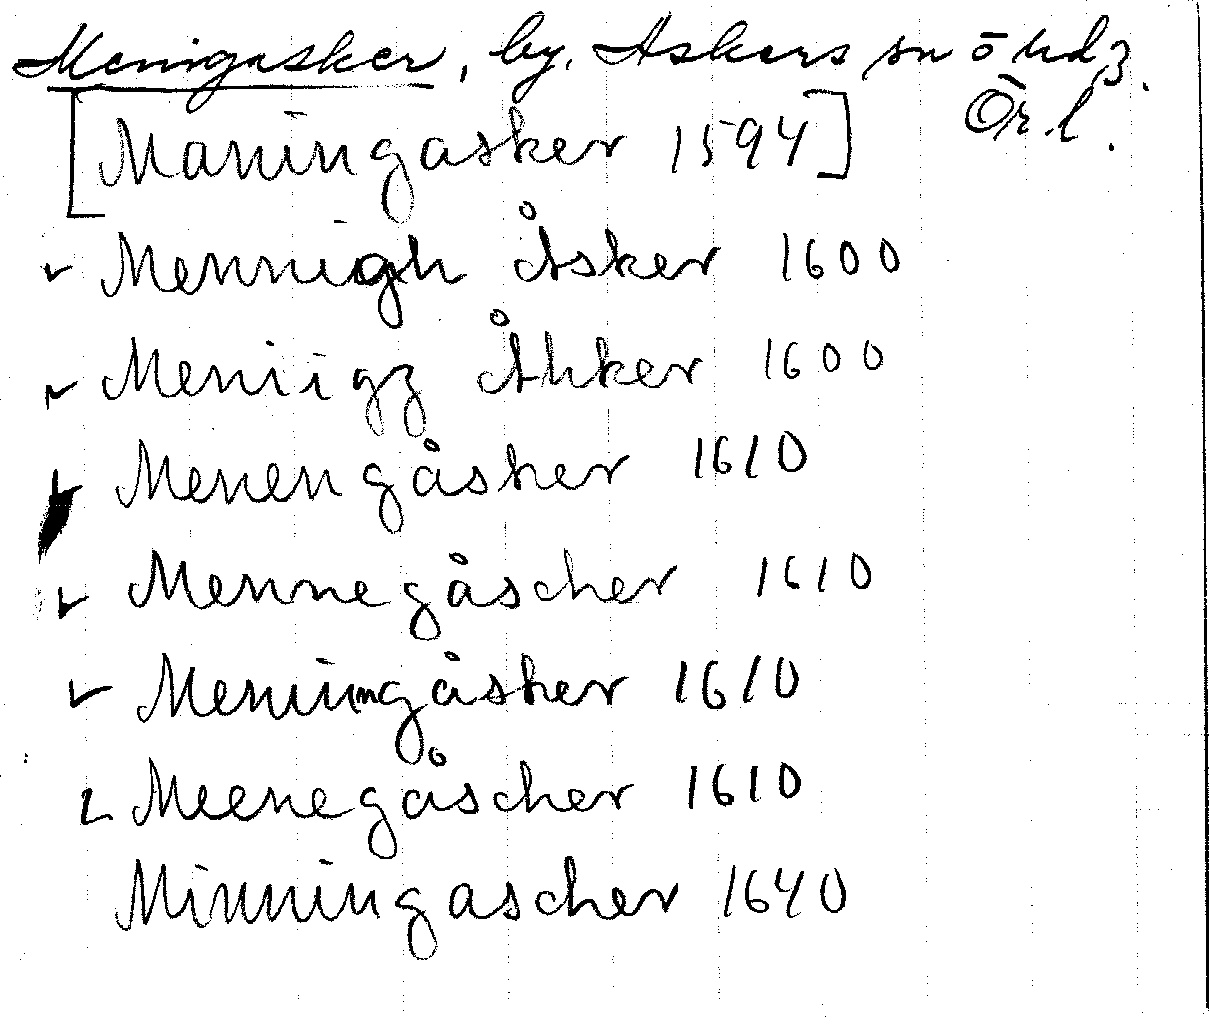 Menigasker, by, Askers sn ö hd,
Ör. l.
[Maningasker 1594]
Mennigh Åsker 1600
Meniigz Åhker 1600
Menengåsker 1610
Mennegåscher 1610
Meniingåsker 1610
Meenegåscher 1610
Minningascher 1640